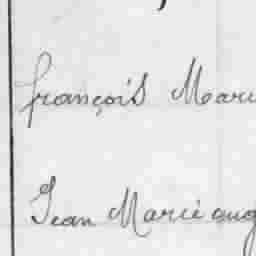 françois Mari
Jean Marie aug